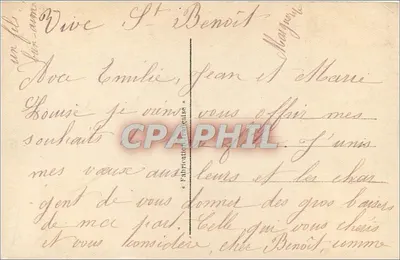 Vive St Benoît
un fils
bien aimé
Avce Emilie, Jean et Marie
Louise je viens vous offrir mes
souhaits J'unis
mes vœux aux leurs et les char
gent de vous donner des gros baisers
de ma part. Celle qui vous chéris
et vous considère, cher Benoît, comme
« Fabrication Française »
CPAPHIL